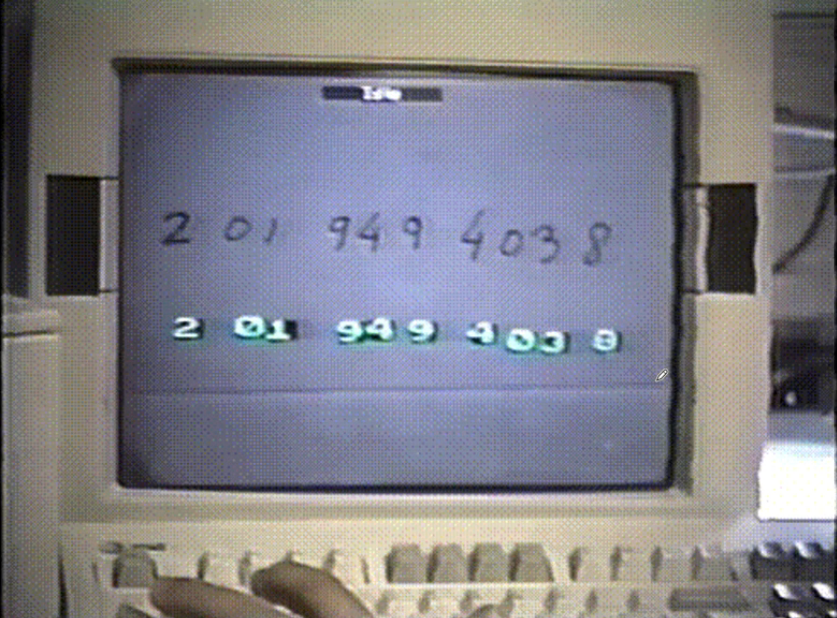 2 01 949 4038
2 01 949 403 8